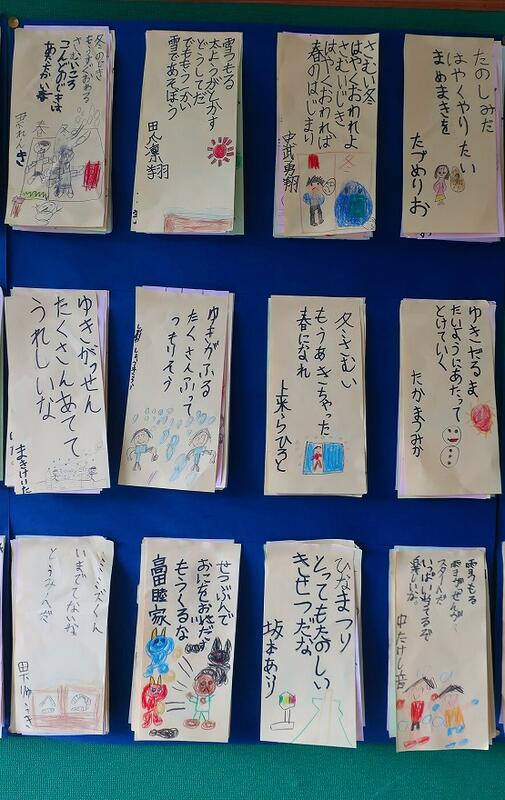 冬のとき
もうすぐおわる
さむいころ
こんどのときは
あたたかい春
春
冬
雪つもる
太ようがとかす
どうしてだ
でももう一かい
雪であそぼう
さむい冬
はやくおわれよ
さむいじき
はやくおわれば
春のはじまり
中武勇翔
冬
たのしみだ
はやくやりたい
まめまきを
たづめりお
ゆきがっせん
たくさんあてて
うれしいな
まきけいた
ゆきがふる
たくさんふって
つもりそう
冬さむい
もうあきちゃった
春になれ
上米らひろと
ゆきだるま
たいようにあたって
とけていく
たかまつみか
ミミズくん
いまでてないな
とうみんへだ
せつぶんで
おにをおいだす
もうくるな
高田睦家
ひなまつり
とってもたのしい
きせつだな
坂本あいり
雪つもる
雪がっせんが
スタートだ
いっぱいあてるぞ
楽しいな